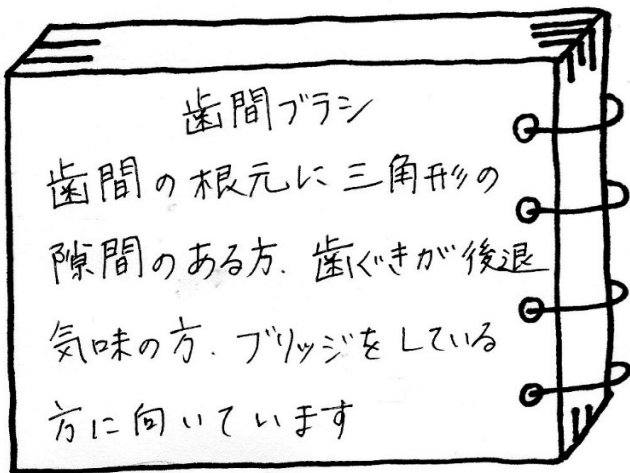 歯間ブラシ
歯間の根元に三角形の
隙間のある方．歯ぐきが後退
気味の方．ブリッジをしている
方に向いています